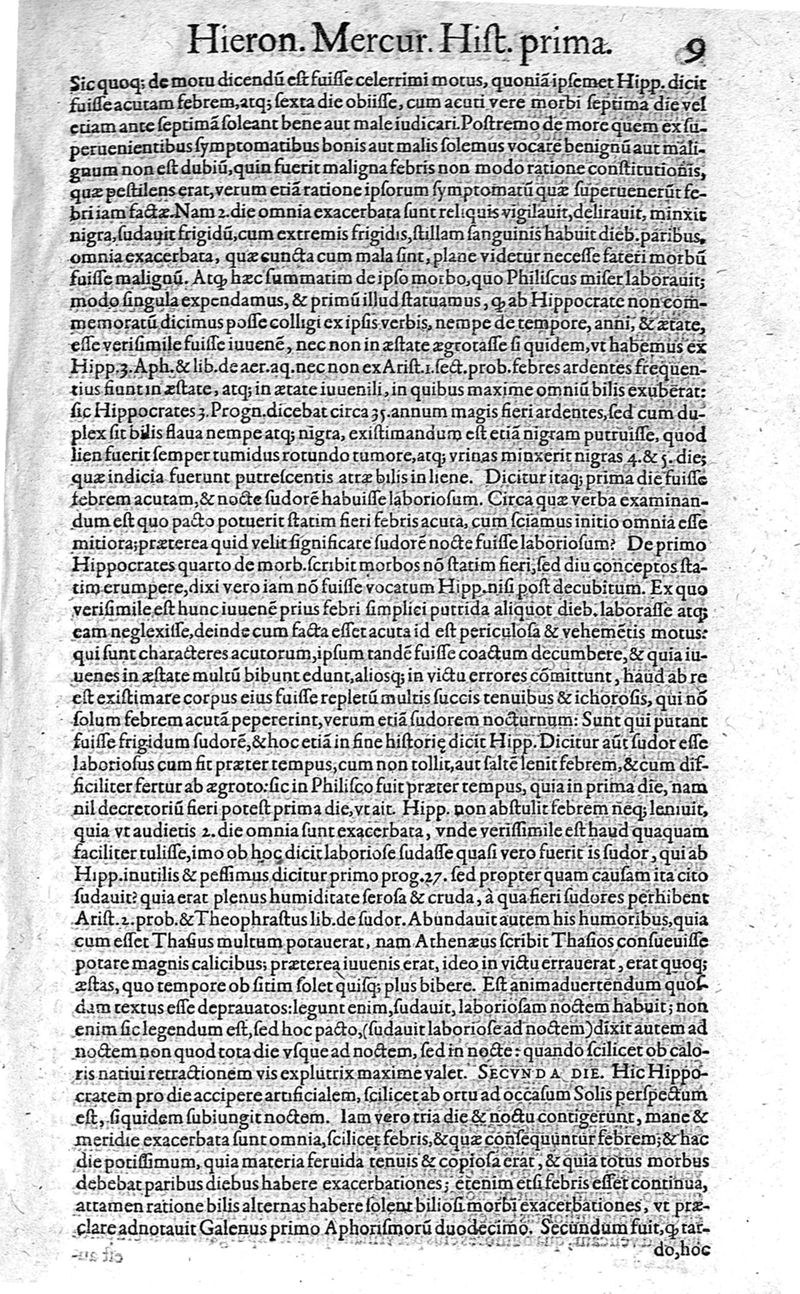 Hieron. Mercur. Hiſt. prima. 9
Sic quoq; de motu dicendū eſt fuiſſe celerrimi motus, quoniā ipſemet Hipp. dicit
fuiſſe acutam febrem, atq; ſexta die obiiſſe, cum acuti vere morbi ſeptima die vel
etiam ante ſeptimā ſoleant bene aut male iudicari. Poſtremo de more quem ex ſu-
peruenientibus ſymptomatibus bonis aut malis ſolemus vocare benignū aut mali-
gnum non eſt dubiū, quin fuerit maligna febris non modo ratione conſtitutionis,
quæ peſtilens erat, verum etiā ratione ipſorum ſymptomatū quæ ſuperuenerūt fe-
bri iam factæ. Nam 2. die omnia exacerbata ſunt reliquis vigilauit, delirauit, minxit
nigra, ſudauit frigidū, cum extremis frigidis, ſtillam ſanguinis habuit dieb. paribus,
omnia exacerbata, quæ cuncta cum mala ſint, plane videtur neceſſe fateri morbū
fuiſſe malignū. Atq; hæc ſummatim de ipſo morbo, quo Philiſcus miſer laborauit;
modo ſingula expendamus, & primū illud ſtatuamus, ꝙ ab Hippocrate non com-
memoratū dicimus poſſe colligi ex ipſis verbis, nempe de tempore, anni, & ætate,
eſſe veriſimile fuiſſe iuuenē, nec non in æſtate ægrotaſſe ſi quidem, vt habemus ex
Hipp. 3. Aph. & lib. de aer. aq. nec non ex Ariſt. 1. ſect. prob. febres ardentes frequen-
tius fiunt in æſtate, atq; in ætate iuuenili, in quibus maxime omniū bilis exuberat:
ſic Hippocrates 3. Progn. dicebat circa 35. annum magis fieri ardentes, ſed cum du-
plex ſit bilis flaua nempe atq; nigra, exiſtimandum eſt etiā nigram putruiſſe, quod
lien fuerit ſemper tumidus rotundo tumore, atq; vrinas minxerit nigras 4. & 5. die;
quæ indicia fuerunt putreſcentis atræ bilis in liene. Dicitur itaq; prima die fuiſſe
febrem acutam, & nocte ſudorē habuiſſe laborioſum. Circa quæ verba examinan-
dum eſt quo pacto potuerit ſtatim fieri febris acuta, cum ſciamus initio omnia eſſe
mitiora; præterea quid velit ſignificare ſudorē nocte fuiſſe laborioſum? De primo
Hippocrates quarto de morb. ſcribit morbos nō ſtatim fieri, ſed diu conceptos ſta-
tim erumpere, dixi vero iam nō fuiſſe vocatum Hipp. niſi poſt decubitum. Ex quo
veriſimile eſt hunc iuuenē prius febri ſimplici putrida aliquot dieb. laboraſſe atq;
eam neglexiſſe, deinde cum facta eſſet acuta id eſt periculoſa & vehemētis motus:
qui ſunt characteres acutorum, ipſum tandē fuiſſe coactum decumbere, & quia iu-
uenes in æſtate multū bibunt edunt, alioſq; in victu errores cōmittunt, haud ab re
eſt exiſtimare corpus eius fuiſſe repletū multis ſuccis tenuibus & ichoroſis, qui nō
ſolum febrem acutā pepererint, verum etiā ſudorem nocturnum: Sunt qui putant
fuiſſe frigidum ſudorē, & hoc etiā in fine hiſtorię dicit Hipp. Dicitur aūt ſudor eſſe
laborioſus cum fit præter tempus, cum non tollit, aut ſaltē lenit febrem, & cum dif-
ficiliter fertur ab ægroto: ſic in Philiſco fuit præter tempus, quia in prima die, nam
nil decretoriū fieri poteſt prima die, vt ait. Hipp. non abſtulit febrem neq; leniuit,
quia vt audietis 2. die omnia ſunt exacerbata, vnde veriſſimile eſt haud quaquam
faciliter tuliſſe, imo ob hoc dicit laborioſe ſudaſſe quaſi vero fuerit is ſudor, qui ab
Hipp. inutilis & peſſimus dicitur primo prog. 27. ſed propter quam cauſam ita cito
ſudauit? quia erat plenus humiditate ſeroſa & cruda, à qua fieri ſudores perhibent
Ariſt. 2. prob. & Theophraſtus lib. de ſudor. Abundauit autem his humoribus, quia
cum eſſet Thaſius multum potauerat, nam Athenæus ſcribit Thaſios conſueuiſſe
potare magnis calicibus; præterea iuuenis erat, ideo in victu errauerat, erat quoq;
æſtas, quo tempore ob ſitim ſolet quiſq; plus bibere. Eſt animaduertendum quoſ-
dam textus eſſe deprauatos: legunt enim, ſudauit, laborioſam noctem habuit; non
enim ſic legendum eſt, ſed hoc pacto, (ſudauit laborioſe ad noctem) dixit autem ad
noctem non quod tota die vſque ad noctem, ſed in nocte: quando ſcilicet ob calo-
ris natiui retractionem vis expultrix maxime valet. SECVNDA DIE. Hic Hippo-
cratem pro die accipere artificialem, ſcilicet ab ortu ad occaſum Solis perſpectum
eſt, ſiquidem ſubiungit noctem. Iam vero tria die & noctu contigerunt, mane &
meridie exacerbata ſunt omnia, ſcilicet febris, & quæ conſequuntur febrem; & hac
die potiſſimum, quia materia feruida tenuis & copioſa erat, & quia totus morbus
debebat paribus diebus habere exacerbationes; etenim etſi febris eſſet continua,
attamen ratione bilis alternas habere ſolent bilioſi morbi exacerbationes, vt præ-
clare adnotauit Galenus primo Aphoriſmorū duodecimo. Secundum fuit, ꝙ tar-
do, hoc